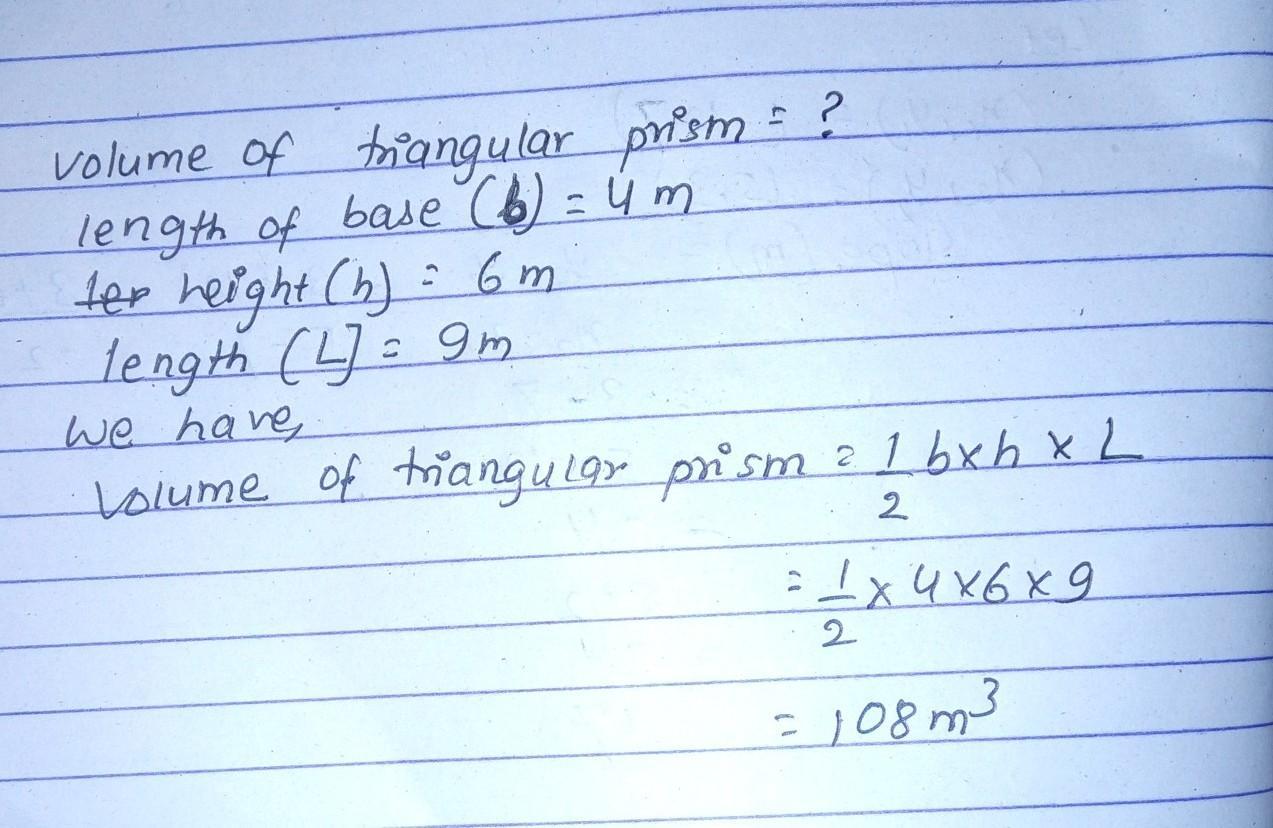 volume of triangular prism = ?
length of base (b) = 4 m
ter height (h) = 6 m
length (L] = 9m
we have,
Volume of triangular prism = 1/2 b×h × L
= 1/2 × 4×6×9
= 108 m³